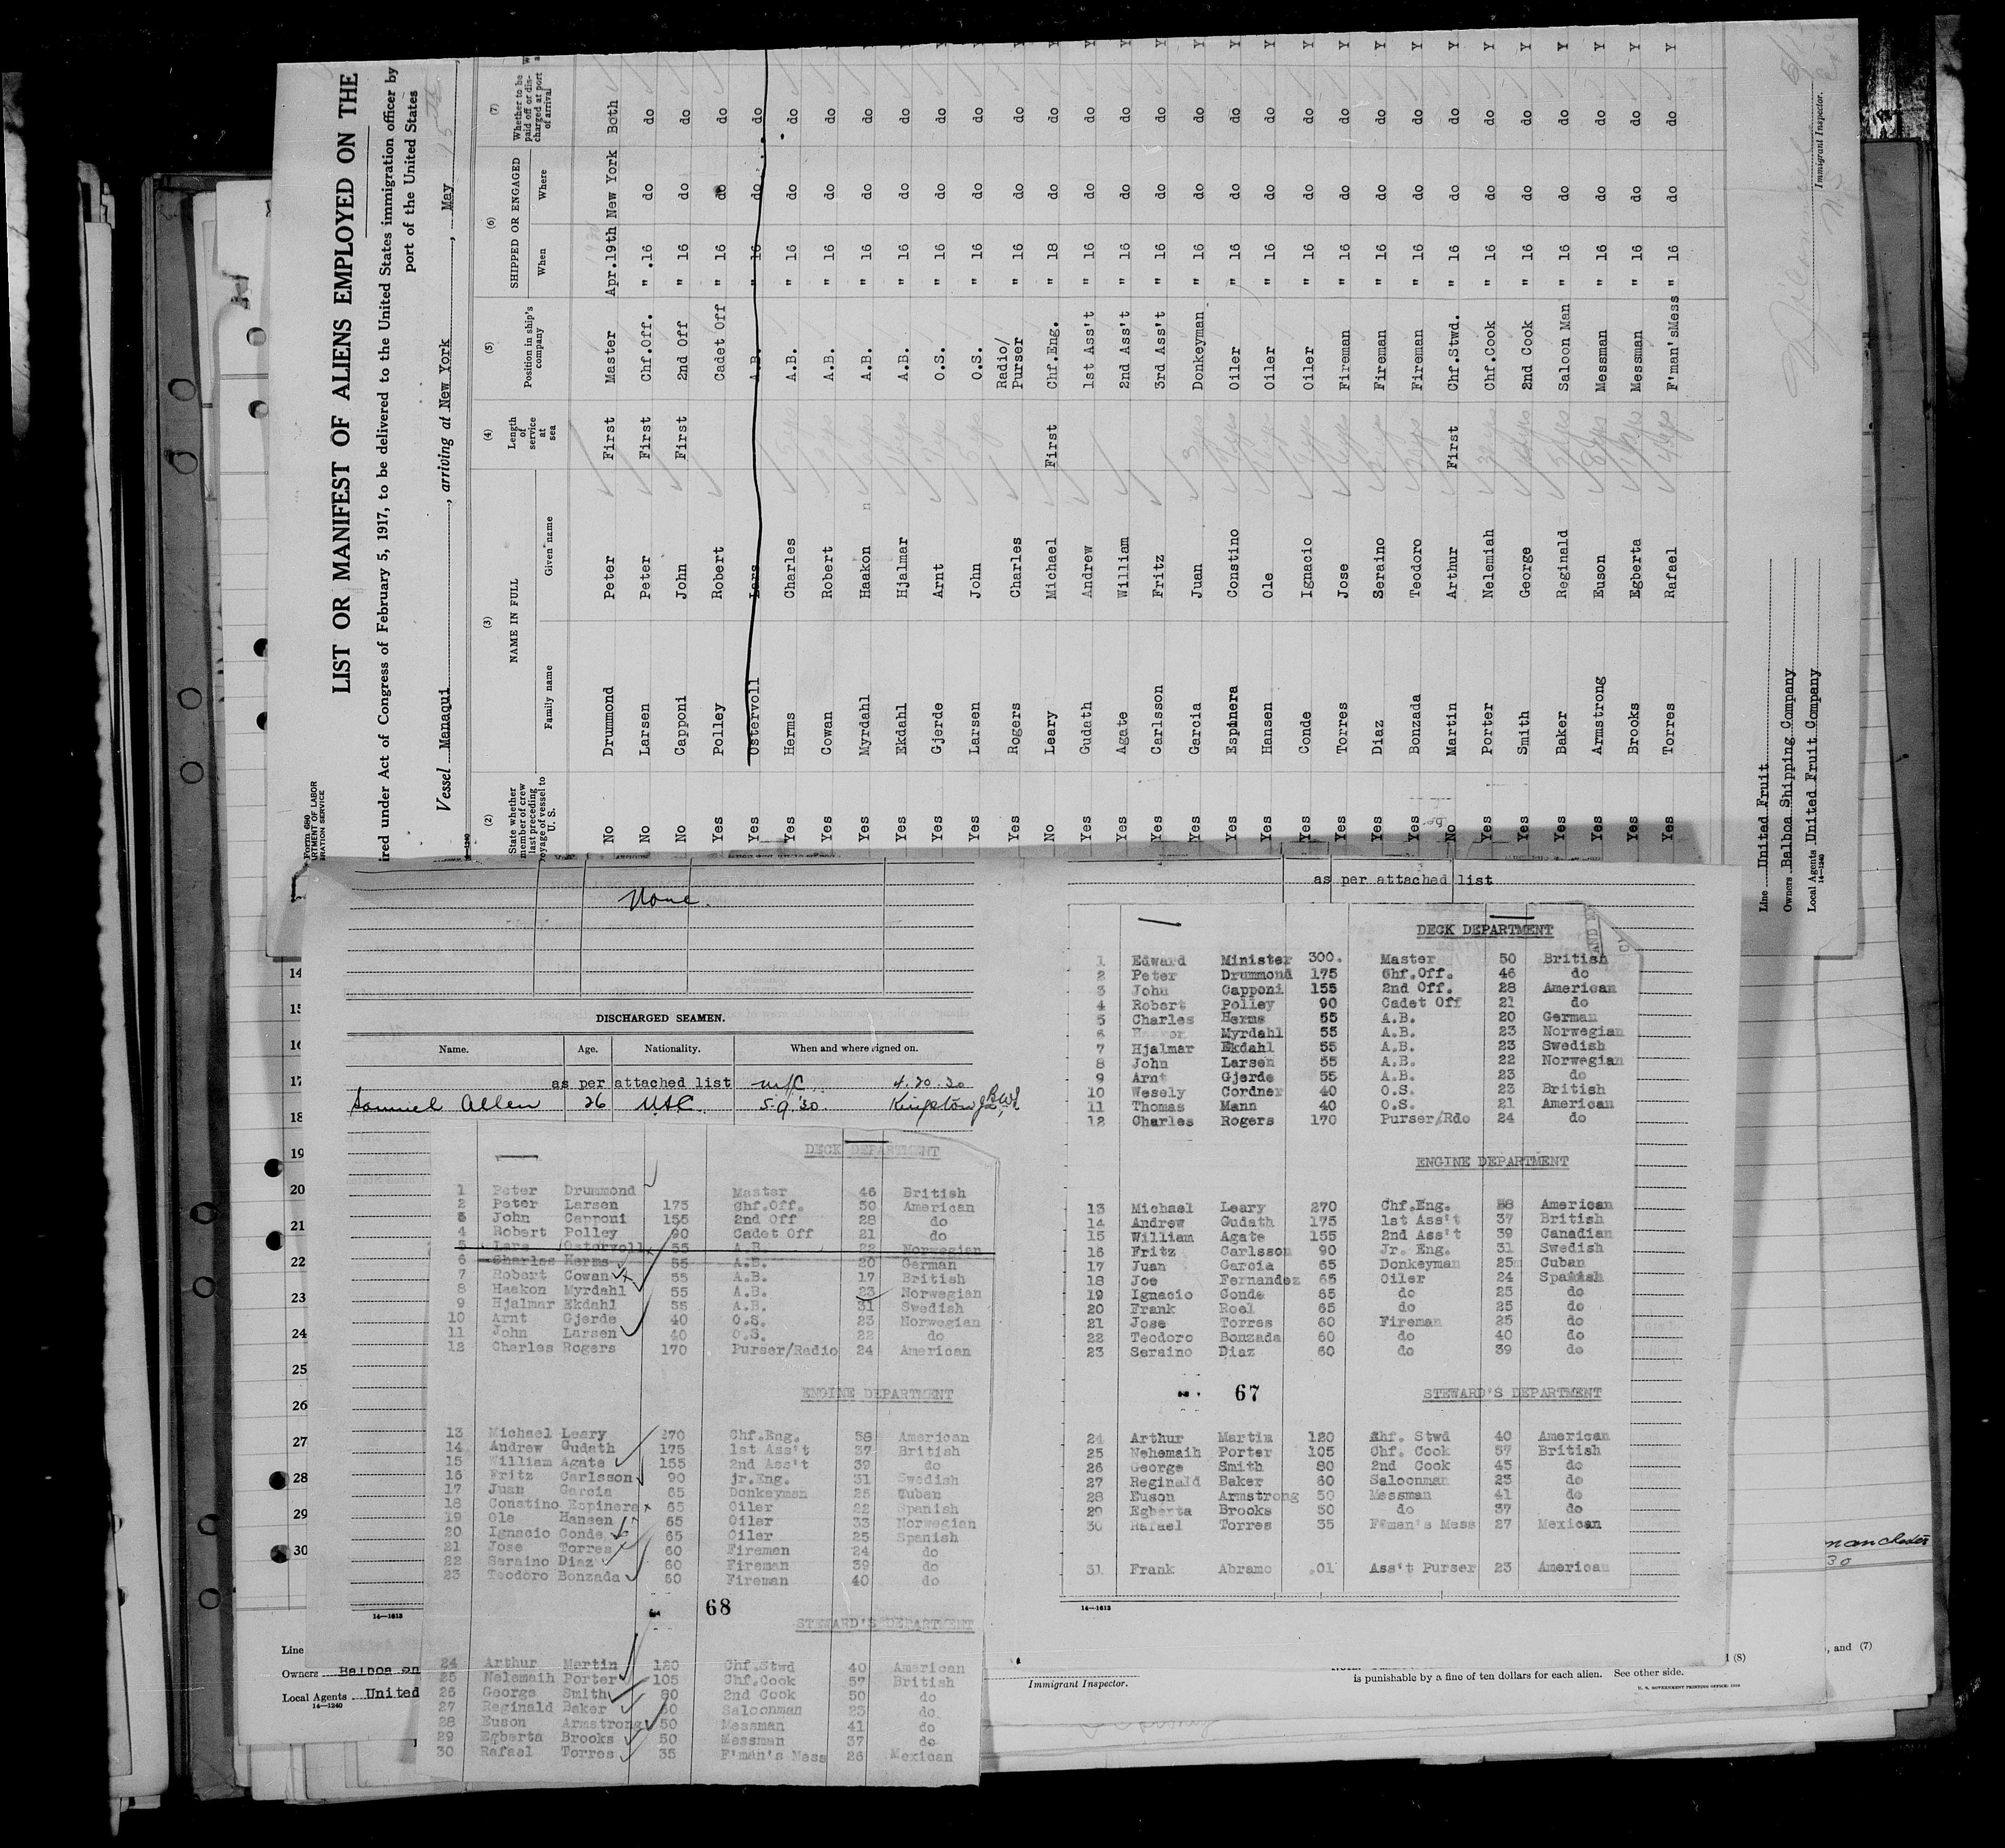 Form 680
LIST OR MANIFEST OF ALIENS EMPLOYED ON THE
ired under Act of Congress of February 5, 1917, to be delivered to the United States immigration officer by
port of the United States
Vessel Managui, arriving at New York, May 15
(2) (3) (4) (5) (6) (7)
State whether member of crew last preceding voyage of vessel to U. S. NAME IN FULL Length of service at sea Position in ship's company SHIPPED OR ENGAGED Whether to be paid off or discharged at port of arrival
Family name Given name When Where
No Drummond Peter First Master Apr.19th New York Both
No Larsen Peter First Chf.Off. " .16 do do
No Capponi John First 2nd Off " 16 do do
Yes Polley Robert Cadet Off " 16 do do
Yes Ostervoll Lars A.B. " 16 do do
Yes Herms Charles A.B. " 16 do do Y
Yes Cowan Robert A.B. " 16 do do Y
Yes Myrdahl Haakon A.B. " 16 do do Y
Yes Ekdahl Hjalmar A.B. " 16 do do Y
Yes Gjerde Arnt O.S. " 16 do do Y
Yes Larsen John O.S. " 16 do do Y
Yes Rogers Charles Radio/Purser " 16 do do Y
No Leary Michael First Chf.Eng. " 18 do do Y
Yes Gudath Andrew 1st Ass't " 16 do do Y
Yes Agate William 2nd Ass't " 16 do do Y
Yes Carlsson Fritz 3rd Ass't " 16 do do Y
Yes Garcia Juan Donkeyman " 16 do do Y
Yes Espinera Constino Oiler " 16 do do Y
Yes Hansen Ole Oiler " 16 do do Y
Yes Conde Ignacio Oiler " 16 do do Y
Yes Torres Jose Fireman " 16 do do Y
Yes Diaz Seraino Fireman " 16 do do Y
Yes Bonzada Teodoro Fireman " 16 do do Y
No Martin Arthur First Chf.Stwd. " 16 do do Y
Yes Porter Nelemiah Chf.Cook " 16 do do Y
Yes Smith George 2nd Cook " 16 do do Y
Yes Baker Reginald Saloon Man " 16 do do Y
Yes Armstrong Euson Messman " 16 do do Y
Yes Brooks Egberta Messman " 16 do do Y
Yes Torres Rafael F'man'sMess " 16 do do Y
Line United Fruit
Owners Balboa Shipping Company
Local Agents United Fruit Company
14—1240
Immigrant Inspector.
None.
DISCHARGED SEAMEN.
Name. Age. Nationality. When and where signed on.
as per attached list 4.20.30
Samuel Allen 26 USC 5.9.30 Kingston
14
15
16
17
18
19
20
21
22
23
24
25
26
27
28
29
30
DECK DEPARTMENT
1 Peter Drummond Master 46 British
2 Peter Larsen 175 Chf.Off. 50 American
3 John Capponi 155 2nd Off 28 do
4 Robert Polley 90 Cadet Off 21 do
5 Lars Ostervoll 55 A.B. 22 Norwegian
6 Charles Herms 55 A.B. 20 German
7 Robert Cowan 55 A.B. 17 British
8 Haakon Myrdahl 55 A.B. 23 Norwegian
9 Hjalmar Ekdahl 55 A.B. 31 Swedish
10 Arnt Gjerde 40 O.S. 23 Norwegian
11 John Larsen 40 O.S. 22 do
12 Charles Rogers 170 Purser/Radio 24 American
ENGINE DEPARTMENT
13 Michael Leary 270 Chf.Eng. 38 American
14 Andrew Gudath 175 1st Ass't 37 British
15 William Agate 155 2nd Ass't 39 do
16 Fritz Carlsson 90 jr.Eng. 31 Swedish
17 Juan Garcia 65 Donkeyman 25 Cuban
18 Constino Espinera 65 Oiler 22 Spanish
19 Ole Hansen 65 Oiler 33 Norwegian
20 Ignacio Conde 65 Oiler 25 Spanish
21 Jose Torres 60 Firemen 24 do
22 Seraino Diaz 60 Fireman 39 do
23 Teodoro Bonzada 60 Fireman 40 do
68
STEWARD'S DEPARTMENT
24 Arthur Martin 120 Chf.Stwd 40 American
25 Nelemaih Porter 105 Chf.Cook 57 British
26 George Smith 80 2nd Cook 50 do
27 Reginald Baker 60 Saloonman 23 do
28 Euson Armstrong 50 Messman 41 do
29 Egberta Brooks 50 Messman 37 do
30 Rafael Torres 35 F'man's Mess 26 Mexican
14—1613
Line
Owners Balboa
Local Agents United
14—1240
as per attached list
DECK DEPARTMENT
1 Edward Minister 300. Master 50 British
2 Peter Drummond 175 Chf.Off. 46 do
3 John Capponi 155 2nd Off. 28 American
4 Robert Polley 90 Cadet Off 21 do
5 Charles Herms 55 A.B. 20 German
6 Myrdahl 55 A.B. 23 Norwegian
7 Hjalmar Ekdahl 55 A.B. 23 Swedish
8 John Larsen 55 A.B. 22 Norwegian
9 Arnt Gjerde 55 A.B. 23 do
10 Wesely Cordner 40 O.S. 23 British
11 Thomas Mann 40 O.S. 21 American
12 Charles Rogers 170 Purser/Rdo 24 do
ENGINE DEPARTMENT
13 Michael Leary 270 Chf.Eng. 38 American
14 Andrew Gudath 175 1st Ass't 37 British
15 William Agate 155 2nd Ass't 39 Canadian
16 Fritz Carlsson 90 Jr. Eng. 31 Swedish
17 Juan Garcia 65 Donkeyman 25 Cuban
18 Joe Fernandez 65 Oiler 24 Spanish
19 Ignacio Conde 65 do 25 do
20 Frank Roel 65 do 25 do
21 Jose Torres 60 Fireman 25 do
22 Teodoro Bonzada 60 do 40 do
23 Seraino Diaz 60 do 39 do
67
STEWARD'S DEPARTMENT
24 Arthur Martin 120 Chf. Stwd 40 American
25 Nehemaih Porter 105 Chf. Cook 57 British
26 George Smith 80 2nd Cook 45 do
27 Reginald Baker 60 Saloonman 23 do
28 Euson Armstrong 50 Messman 41 do
29 Egberta Brooks 50 do 37 do
30 Rafael Torres 35 F'man's Mess 27 Mexican
31 Frank Abramo .01 Ass't Purser 23 American
14—1613
manchester
30
, and (7)
(8)
is punishable by a fine of ten dollars for each alien. See other side.
Immigrant Inspector.
U. S. GOVERNMENT PRINTING OFFICE